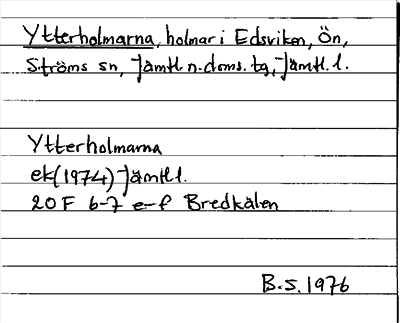 Ytterholmarna, holmar i Edsviken, Ön,
Ströms sn, Jämtl. n. doms. tg, Jämtl. l.
Ytterholmarna
ek (1974) Jämtl.
20 F 6-7 e-f Bredkälen
B.S. 1976